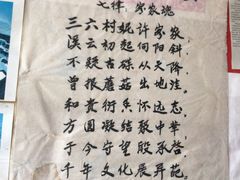 七律．家教魂
三六村妮许家教
溪云初起何阳斜
不疑古碌从天降
曾报蘑菇出地洼
和黄衍兵怀远志
方圆凝结聚中华
于今守望殷承启
千年文化展异葩